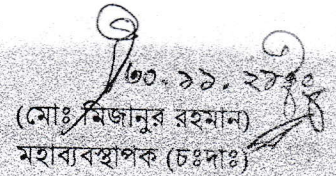 ৩০.১১.২১
(মোঃ মিজানুর রহমান)
মহাব্যবস্থাপক (চঃদাঃ)